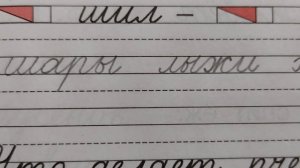 шил –
шары лыжи
Что делает